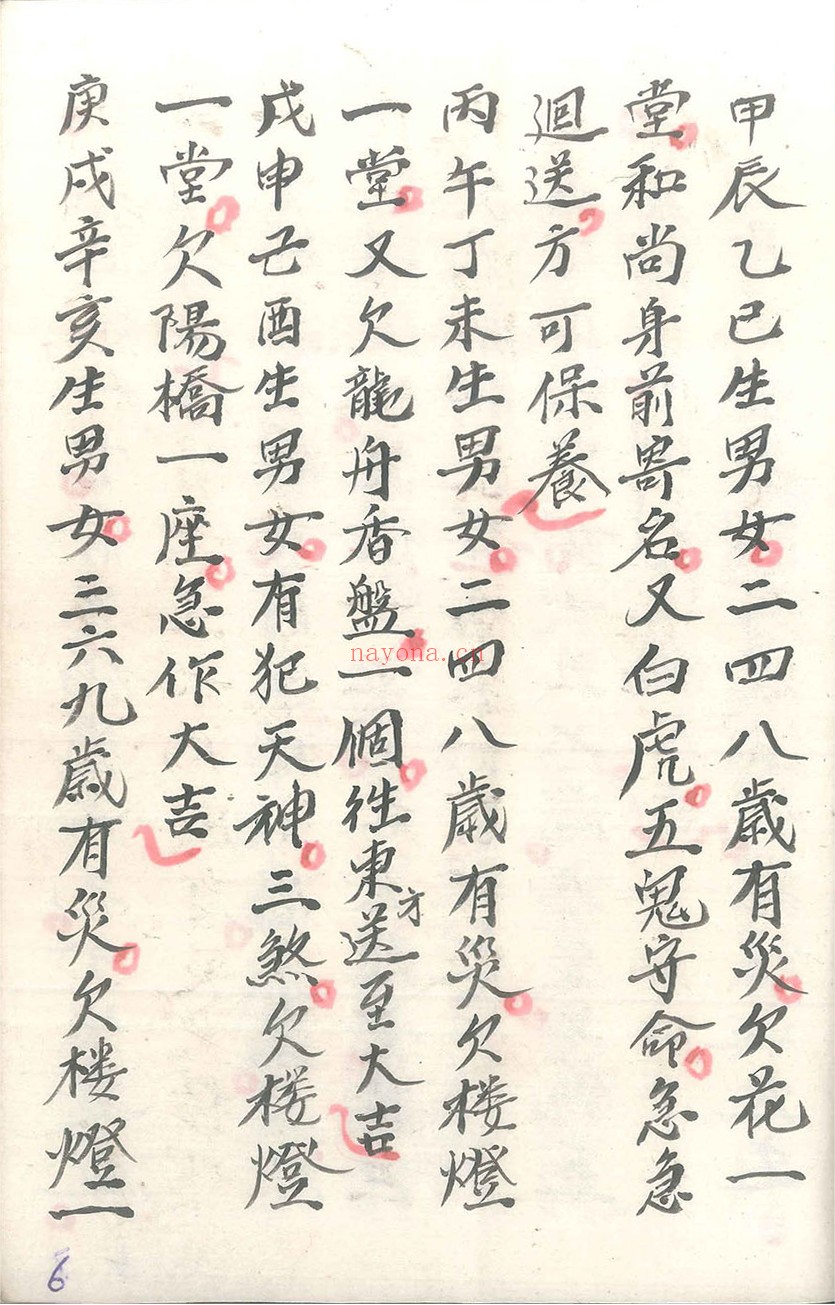 甲辰乙巳生男女二四八歲有災欠花一
堂和尚身前寄名又白虎五鬼守命急急
迴送方可保養
丙午丁未生男女二四八歲有災欠楼燈
一堂又欠龍舟香盤一個往東方送至大吉
戊申己酉生男女有犯天神三煞欠楼燈
一堂欠陽橋一座急作大吉
庚戌辛亥生男女三六九歲有災欠楼燈一
6
nayona.cn